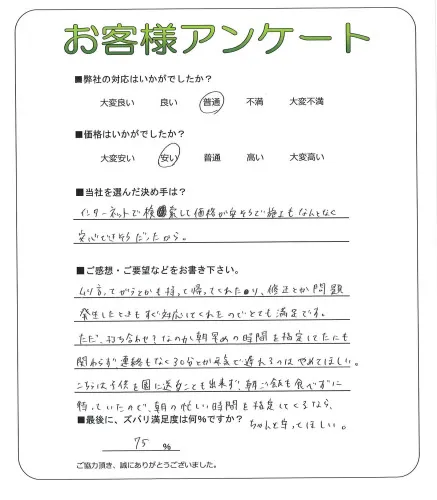 お客様アンケート
■弊社の対応はいかがでしたか?
大変良い 良い 普通 不満 大変不満
■価格はいかがでしたか?
大変安い 安い 普通 高い 大変高い
■当社を選んだ決め手は?
インターネットで検索して価格が安そうで施工もなんとなく
安心できそうだったから。
■ご感想・ご要望などをお書き下さい。
ムリ言ってがらとかも持って帰ってくれたり、修正とか問題
発生したときもすぐ対応してくれたのでとても満足です。
ただ、打ち合わせ?なのか朝早めの時間を指定してたにも
関わらず連絡もなく30分とか平気で遅れるのはやめてほしい。
こちらは子供を園に送ることも出来ず、朝ご飯も食べずに
待っていたので、朝の忙しい時間を指定してくるなら、
ちゃんと守ってほしい。
■最後に、ズバリ満足度は何%ですか?
75 %
ご協力頂き、誠にありがとうございました。